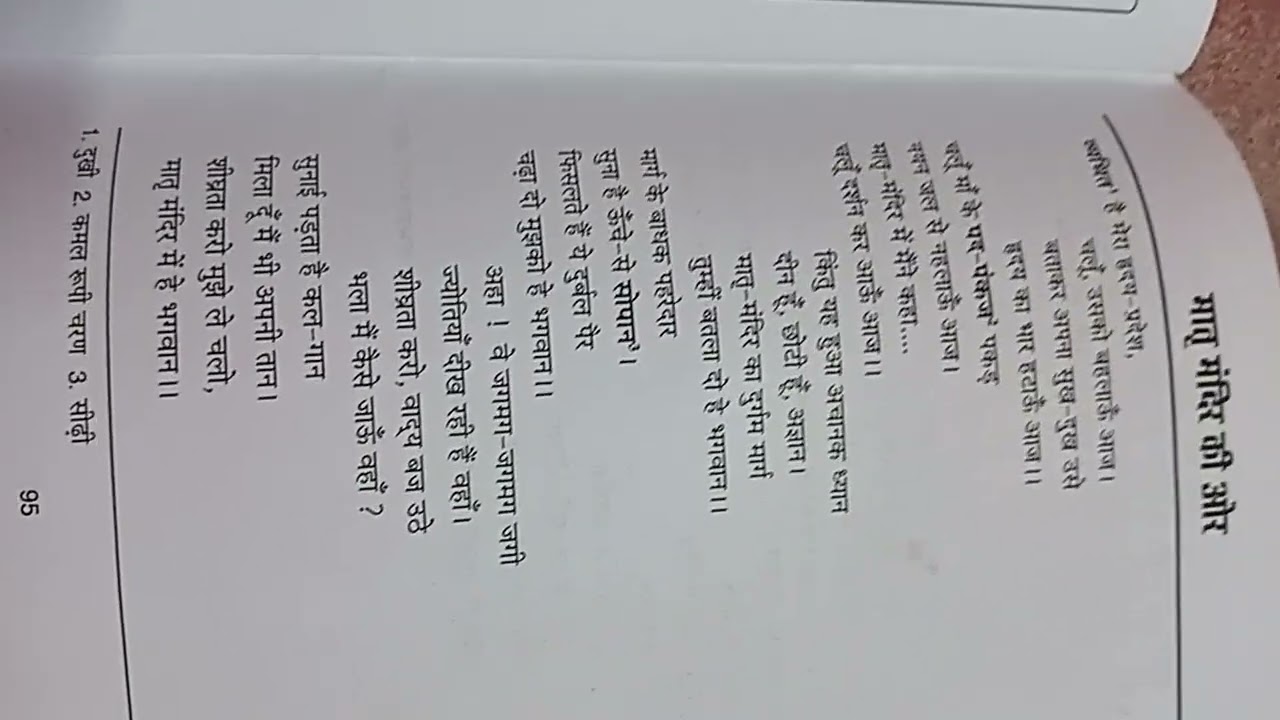 मातृ मंदिर की ओर
व्यथित¹ है मेरा हृदय-प्रदेश,
चलूँ, उसको बहलाऊँ आज।
बताकर अपना सुख-दुख उसे
हृदय का भार हटाऊँ आज।।
चलूँ माँ के पद-पंकज² पकड़
नयन जल से नहलाऊँ आज।
मातृ-मंदिर में मैंने कहा....
चलूँ दर्शन कर आऊँ आज।।
किंतु यह हुआ अचानक ध्यान
दीन हूँ, छोटी हूँ, अज्ञान।
मातृ-मंदिर का दुर्गम मार्ग
तुम्हीं बतला दो हे भगवान।।
मार्ग के बाधक पहरेदार
सुना है ऊँचे-से सोपान³।
फिसलते हैं ये दुर्बल पैर
चढ़ा दो मुझको हे भगवान।।
अहा ! वे जगमग-जगमग जगी
ज्योतियाँ दीख रही हैं वहाँ।
शीघ्रता करो, वाद्य बज उठे
भला मैं कैसे जाऊँ वहाँ ?
सुनाई पड़ता है कल-गान
मिला दूँ मैं भी अपनी तान।
शीघ्रता करो मुझे ले चलो,
मातृ मंदिर में हे भगवान।।
1. दुखी 2. कमल रूपी चरण 3. सीढ़ी
95